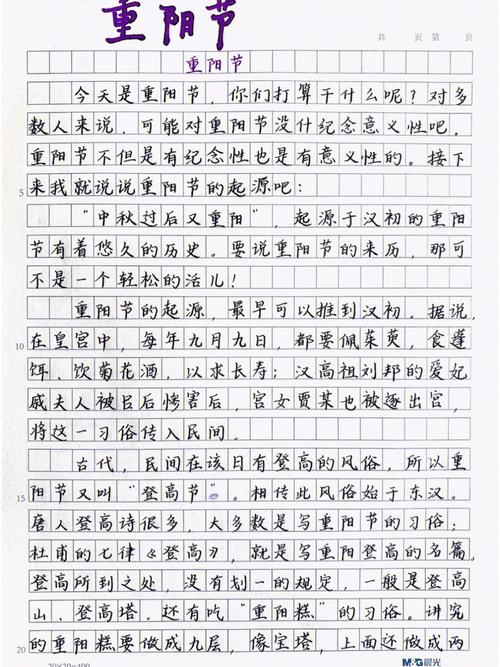 重阳节
共 页 第 页
重阳节
今天是重阳节，你们打算干什么呢？对多
数人来说，可能对重阳节没什纪念意义性吧，
重阳节不但是有纪念性也是有意义性的。接下
5 来我就说说重阳节的起源吧：
"中秋过后又重阳"，起源于汉初的重阳
节有着悠久的历史。要说重阳节的来历，那可
不是一个轻松的活儿！
重阳节的起源，最早可以推到汉初。据说，
10 在皇宫中，每年九月九日，都要佩茱萸，食蓬
饵、饮菊花酒，以求长寿；汉高祖刘邦的爱妃
戚夫人被吕后惨害后，宫女贾某也被逐出宫，
将这一习俗传入民间。
古代，民间在该日有登高的风俗，所以重
15 阳节又叫"登高节"。相传此风俗始于东汉。
唐人登高诗很多，大多数是写重阳节的习俗；
杜甫的七律《登高》，就是写重阳登高的名篇，
登高所到之处，没有划一的规定，一般是登高
山、登高塔。还有吃"重阳糕"的习俗。讲究
20 的重阳糕要做成九层，像宝塔，上面还做成两
20×20=400 M&G晨光